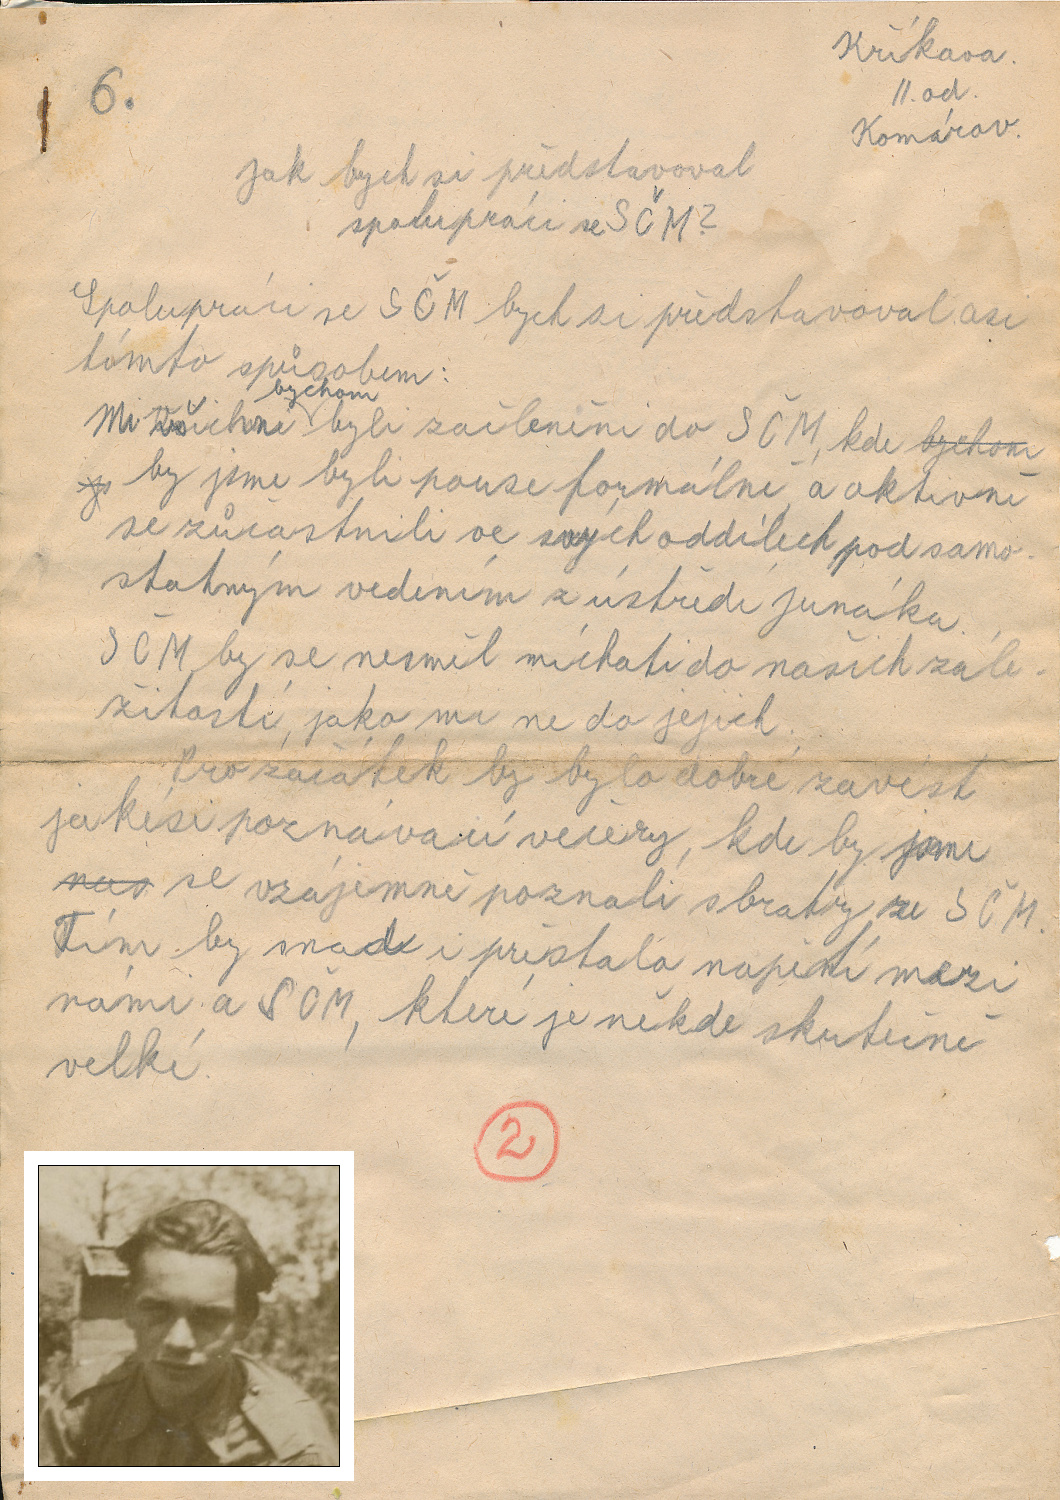 6.
Kříkava.
II. od.
Komárov.
Jak bych si představoval
spolupráci se SČM?
Spolupráci se SČM bych si představoval asi
tímto spůsobem:
bychom
Mi všichni byli začleněni do SČM, kde bychom
by jsme byli pouse formálně, a aktivně
se zůčastnili ve svých oddílech pod samo-
statným vedením z ústředí junáka.
SČM by se nesměl míchati do našich zále-
žitostí, jako mi ne do jejich.
Pro začátek by bylo dobré zavést
jakési poznávací večery, kde by jsme
nás se vzájemně poznali s bratry ze SČM.
Tím by snad i přestalo napětí mezi
námi a SČM, které je někde skutečně
velké.
2